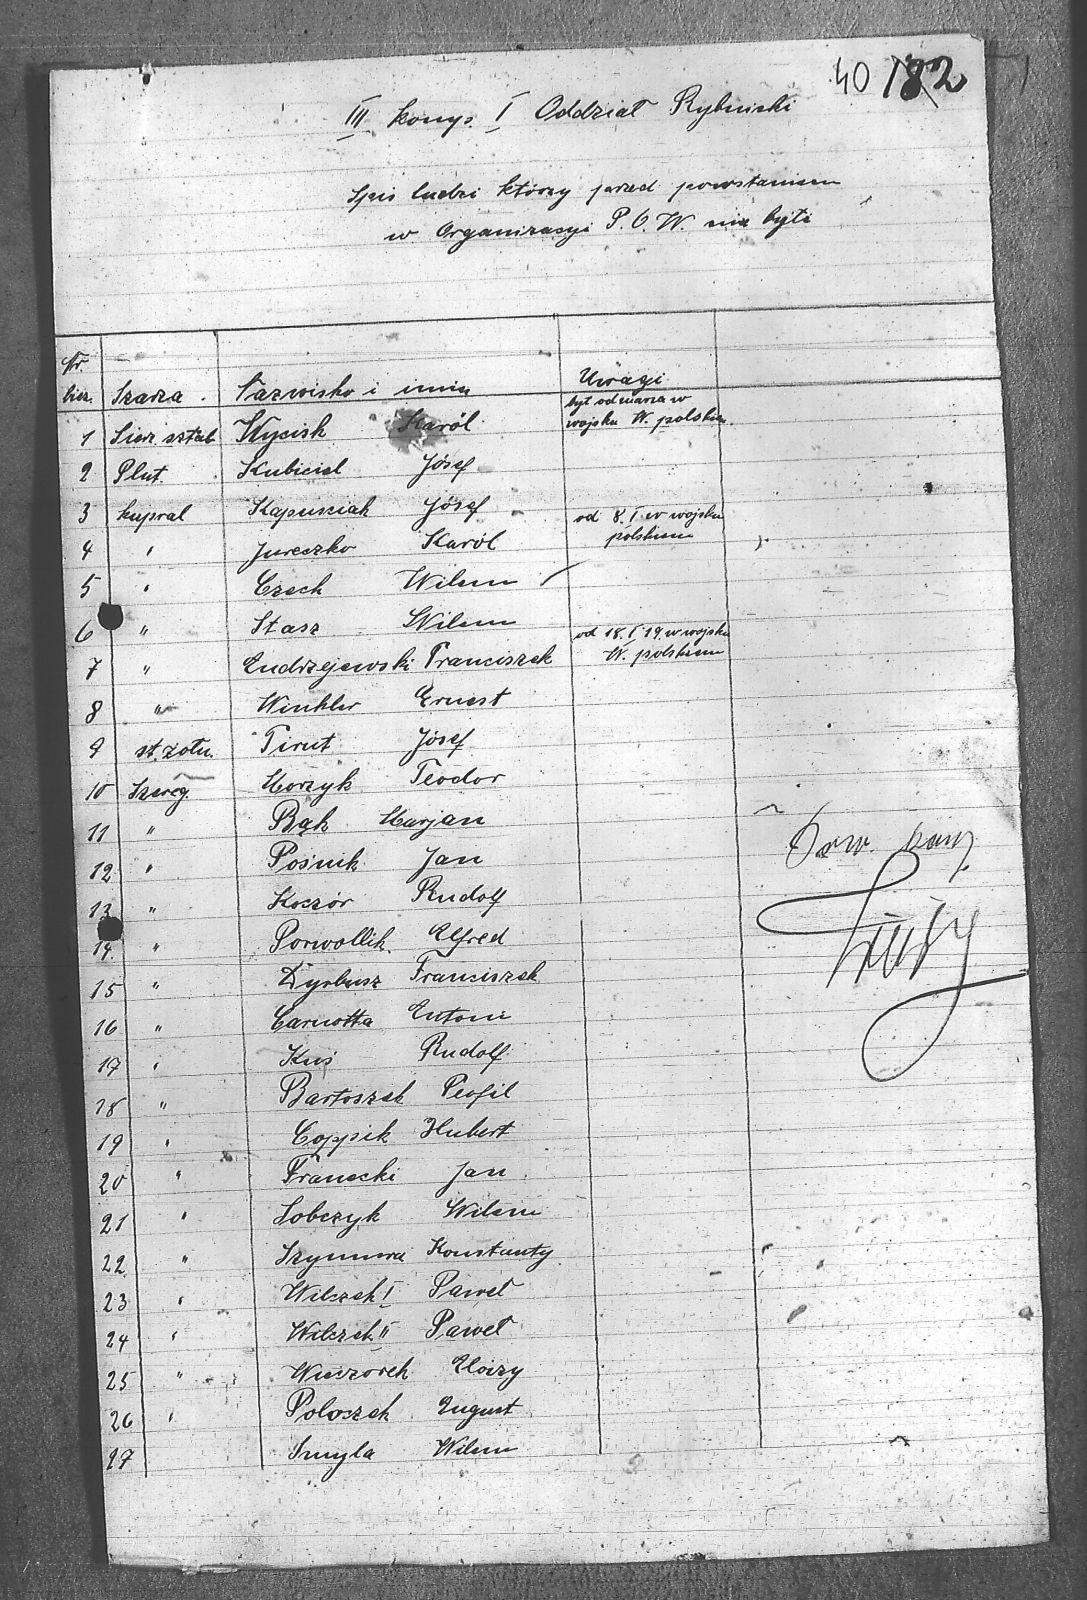 40 182
III komp. I Oddział Rybnicki
Spis ludzi którzy przed powstaniem
w Organizacyi P. O. W. nie byli
Nr.
bież. Szarża. Nazwisko i imię Uwagi
był od marca w
1 Sierż. sztab Wycisk Karól wojsku W. polskim.
2 Plut. Kubiciel Józef
3 kapral Kapuściak Józef od 8. I w wojsku
4 " Jureczko Karól polskiem
5 " Czech Wilem
6 " Stasz Wilem od 18. I 19. w wojsku
7 " Endrzejewski Franciszek W. polskiem
8 " Winkler Ernest
9 st. żołn. Tirut Józef
10 Szereg. Morzyk Teodor
11 " Bąk Marjan
12 " Pośnik Jan
13 " Koczór Rudolf
14. " Porwollik. Alfred
15 " Dyrbusz Franciszek
16 " Carnotta Antoni
17 " Kuś Rudolf
18 " Bartoszek Teofil
19 " Coppik Hubert
20 " Franecki Jan
21 " Sobczyk Wilem
22 " Szymura Konstanty
23 " Wilczek I Paweł
24 " Wilczek II Paweł
25 " Wieczorek Eloizy
26 " Poloczek August
27 Smyla Wilem